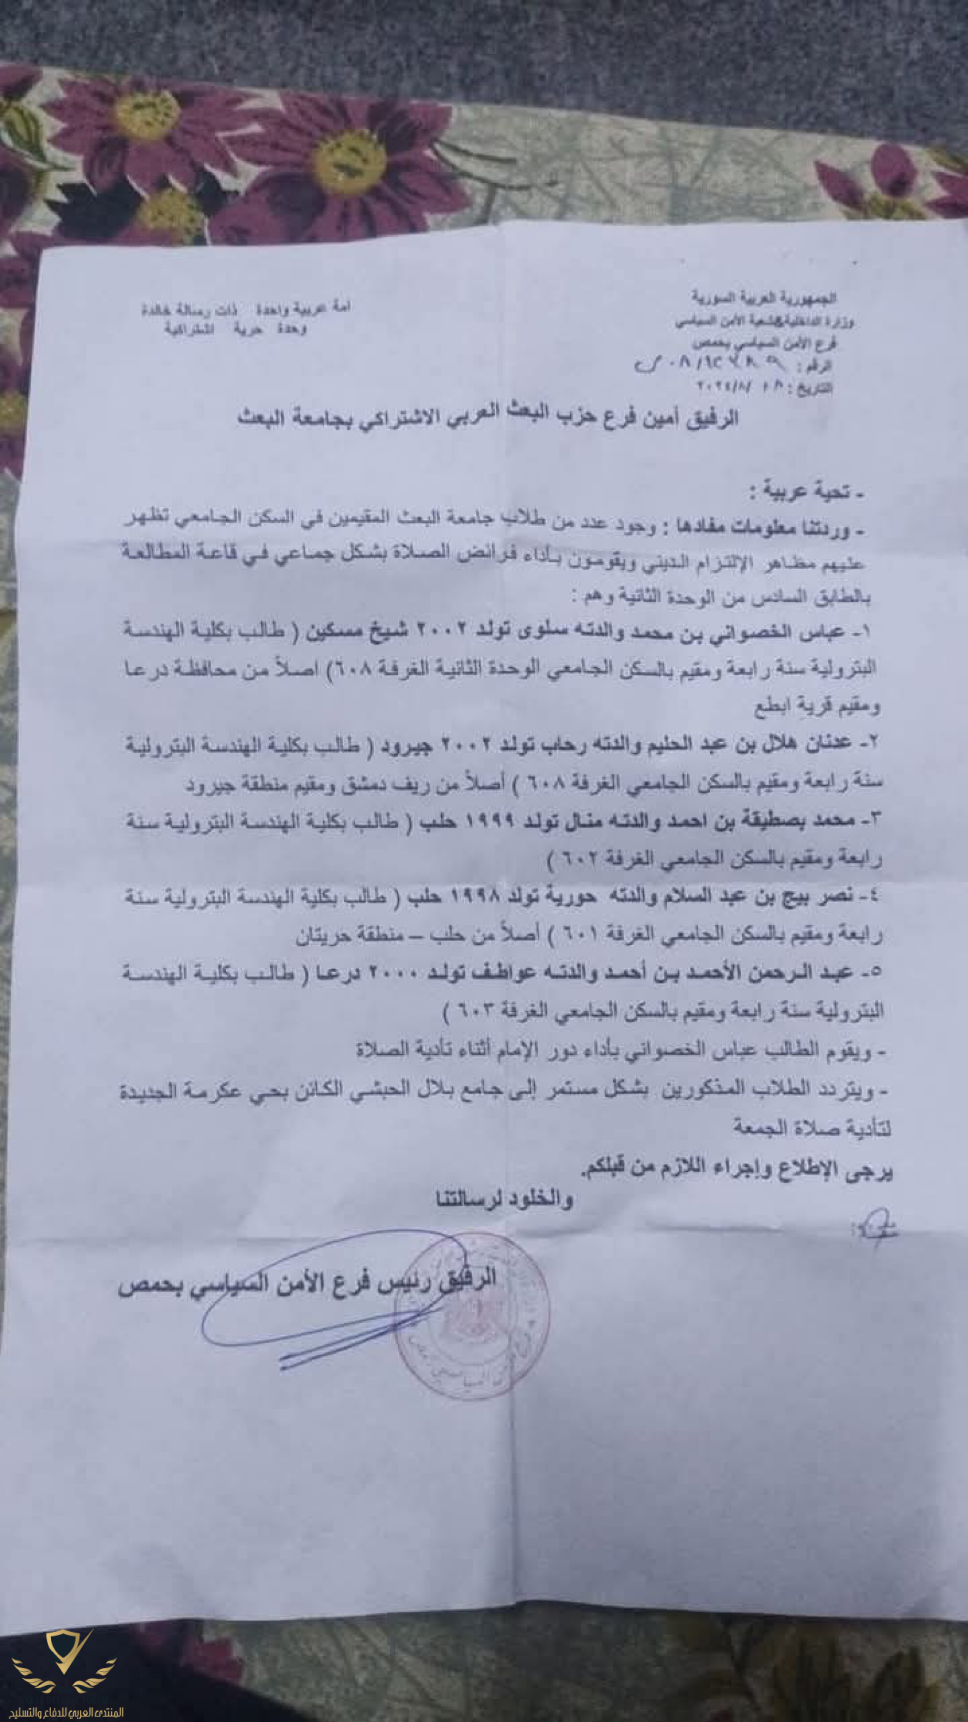 الجمهورية العربية السورية
وزارة الداخلية&شعبة الأمن السياسي
فرع الأمن السياسي بحمص
الرقم :
التاريخ : ٢٠٢٤/٨/
امة عربية واحدة ذات رسالة خالدة
وحدة حرية اشتراكية
الرفيق أمين فرع حزب البعث العربي الاشتراكي بجامعة البعث
- تحية عربية :
- وردتنا معلومات مفادها : وجود عدد من طلاب جامعة البعث المقيمين في السكن الجامعي تظهر
عليهم مظاهر الإلتزام الديني ويقومون بأداء فرائض الصلاة بشكل جماعي في قاعة المطالعة
بالطابق السادس من الوحدة الثانية وهم :
١- عباس الخصواني بن محمد والدته سلوى تولد ٢٠٠٢ شيخ مسكين ( طالب بكلية الهندسة
البترولية سنة رابعة ومقيم بالسكن الجامعي الوحدة الثانية الغرفة ٦٠٨) اصلاً من محافظة درعا
ومقيم قرية ابطع
٢- عدنان هلال بن عبد الحليم والدته رحاب تولد ٢٠٠٢ جيرود ( طالب بكلية الهندسة البترولية
سنة رابعة ومقيم بالسكن الجامعي الغرفة ٦٠٨ ) أصلاً من ريف دمشق ومقيم منطقة جيرود
٣- محمد بصطيقة بن احمد والدته منال تولد ١٩٩٩ حلب ( طالب بكلية الهندسة البترولية سنة
رابعة ومقيم بالسكن الجامعي الغرفة ٦٠٢ )
٤- نصر بيج بن عبد السلام والدته حورية تولد ١٩٩٨ حلب ( طالب بكلية الهندسة البترولية سنة
رابعة ومقيم بالسكن الجامعي الغرفة ٦٠١ ) أصلاً من حلب – منطقة حريتان
٥- عبد الرحمن الأحمد بن أحمد والدته عواطف تولد ٢٠٠٠ درعا ( طالب بكلية الهندسة
البترولية سنة رابعة ومقيم بالسكن الجامعي الغرفة ٦٠٣ )
- ويقوم الطالب عباس الخصواني بأداء دور الإمام أثناء تأدية الصلاة
- ويتردد الطلاب المذكورين بشكل مستمر إلى جامع بلال الحبشي الكائن بحي عكرمة الجديدة
لتأدية صلاة الجمعة
يرجى الإطلاع وإجراء اللازم من قبلكم.
والخلود لرسالتنا
الرفيق رئيس فرع الأمن السياسي بحمص
المنتدى العربي للدفاع والتسليح